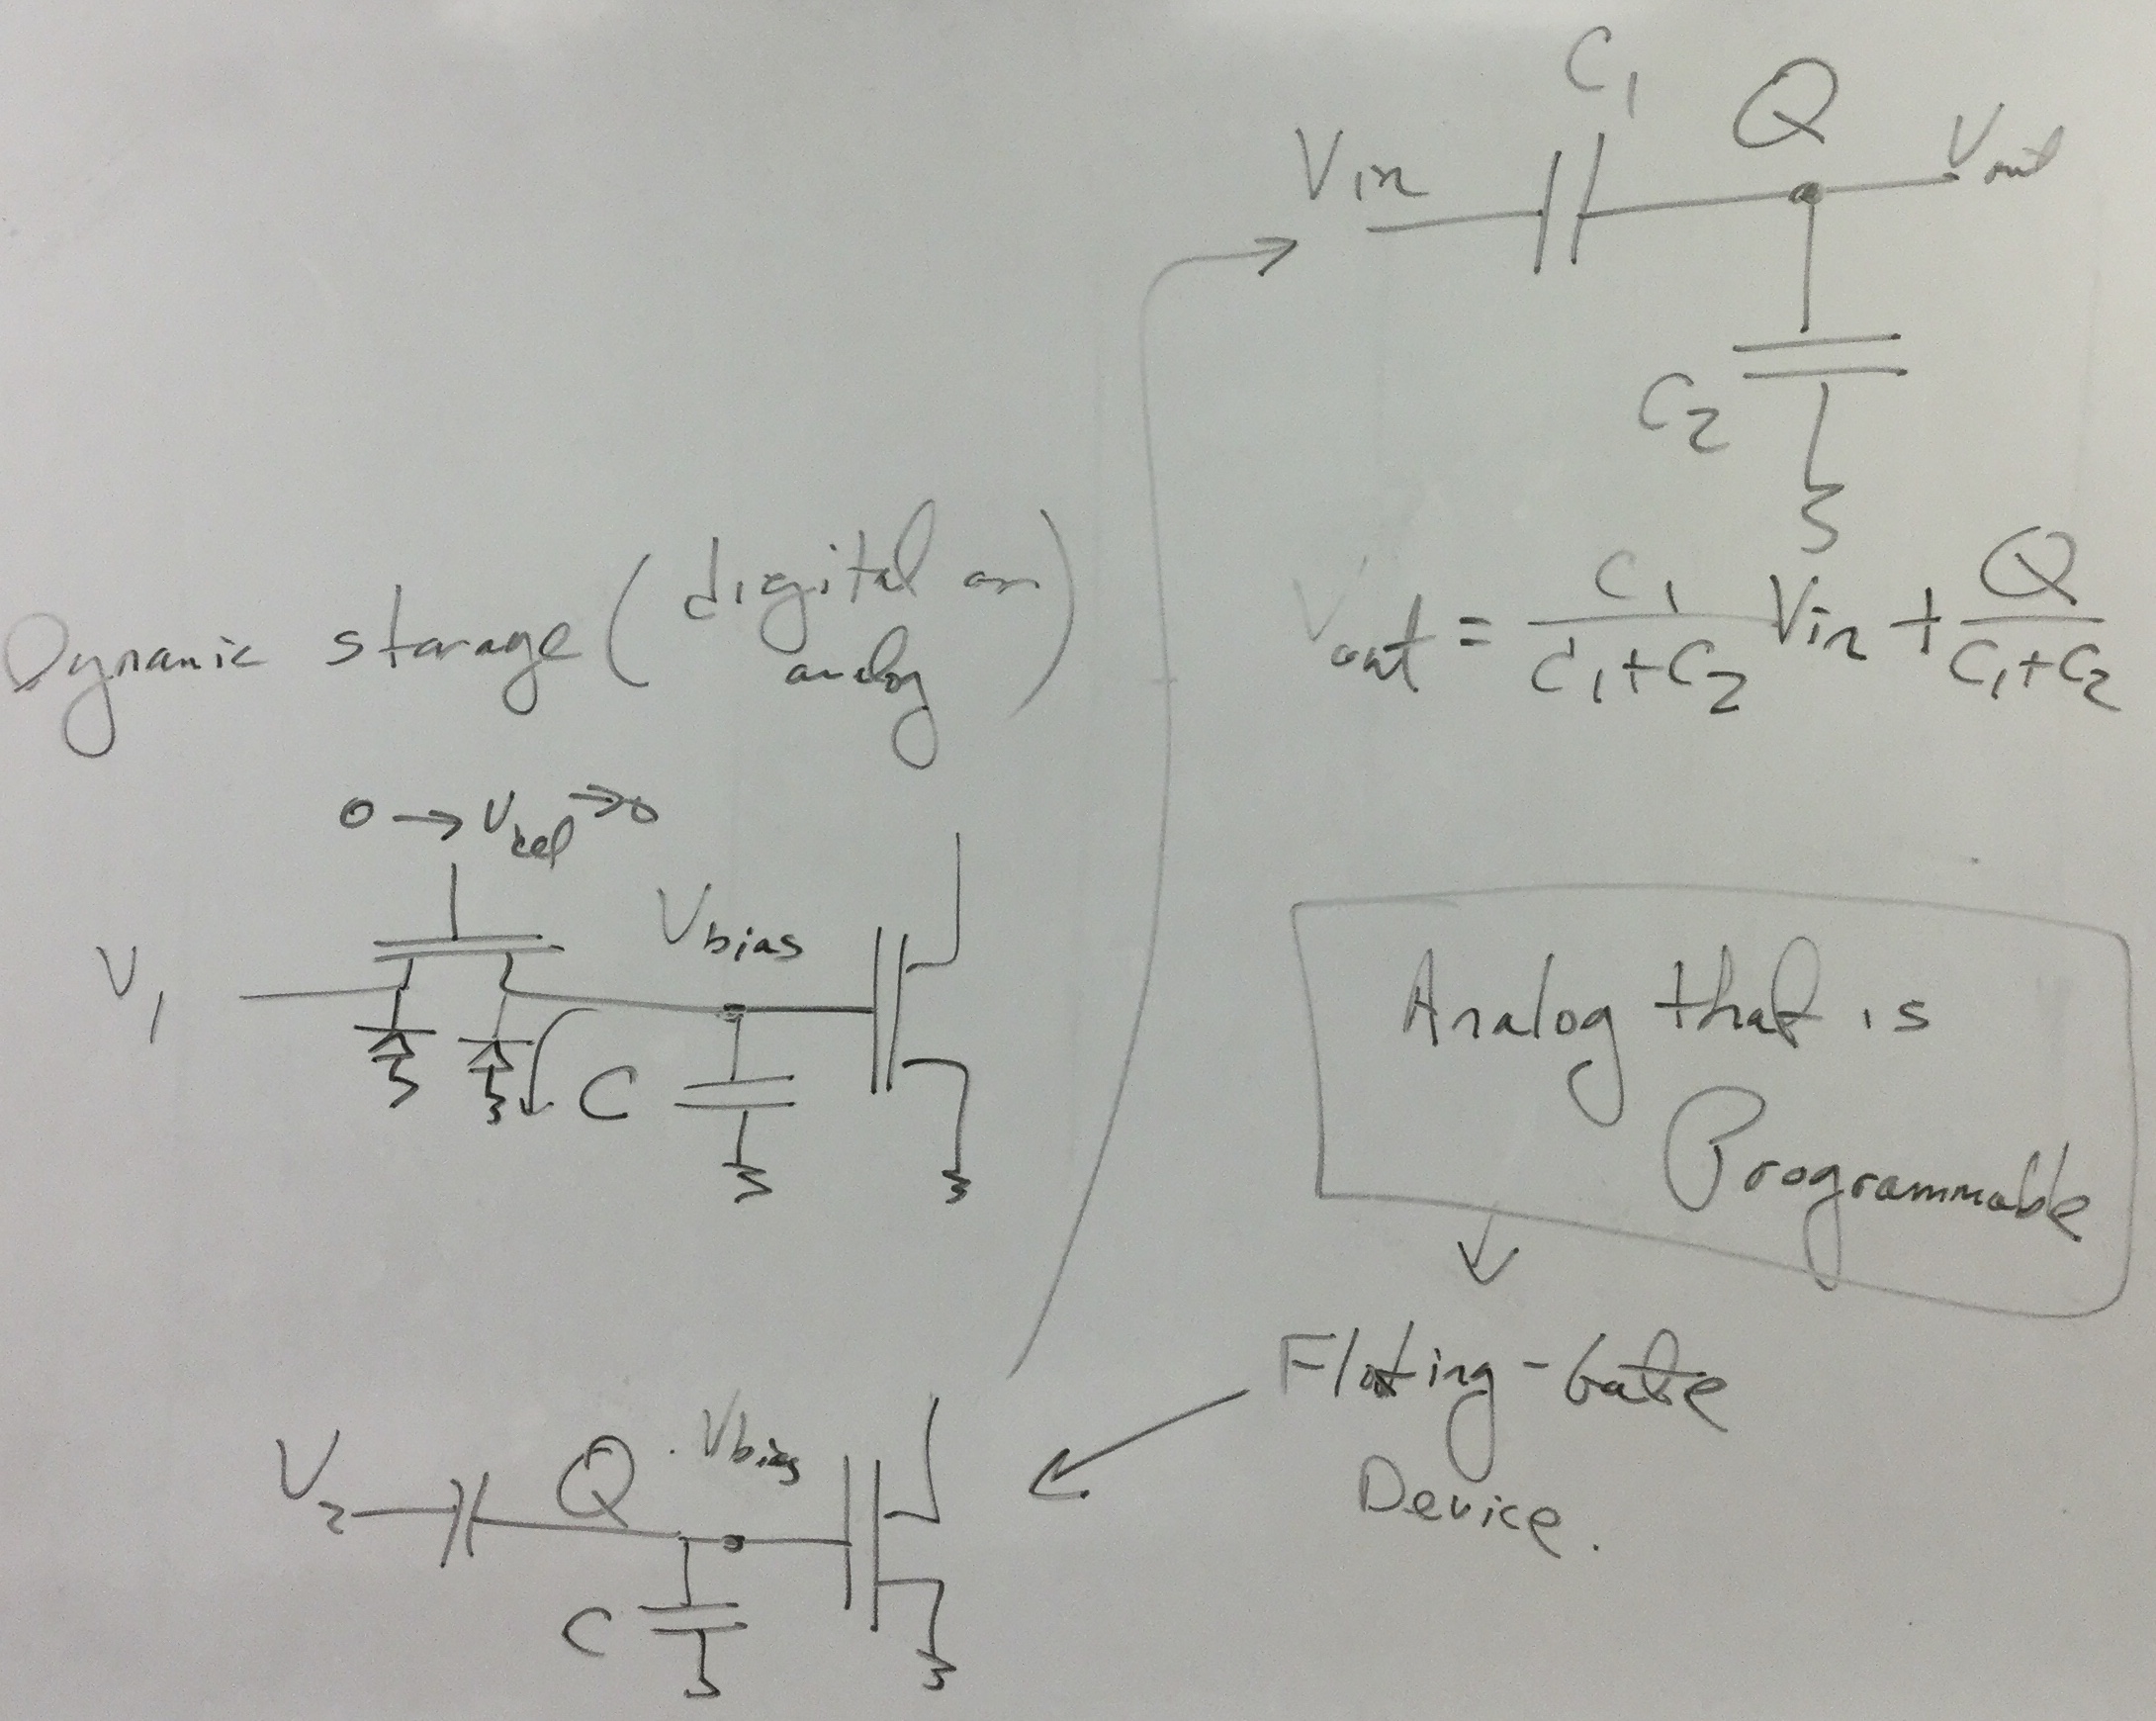 C1
Q
Vin
Vout
C2
Vout = C1/(C1+C2) Vin + Q/(C1+C2)
Dynamic storage (digital or
analog)
0 → Vsel → 0
V1
Vbias
C
Analog that is
Programmable
Floating-Gate
Device.
V2
Q
Vbias
C